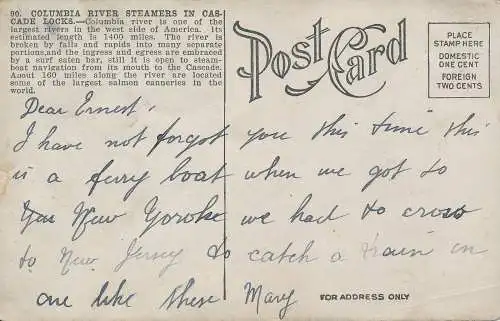 90. COLUMBIA RIVER STEAMERS IN CAS-
CADE LOCKS.—Columbia river is one of the
largest rivers in the west side of America. Its
estimated length is 1400 miles. The river is
broken by falls and rapids into many separate
portions, and the ingress and egress are embraced
by a surf eaten bar, still it is open to steam-
boat navigation from its mouth to the Cascade.
About 160 miles along the river are located
some of the largest salmon canneries in the
world.
Post Card
PLACE
STAMP HERE
DOMESTIC
ONE CENT
FOREIGN
TWO CENTS
Dear Ernest,
I have not forgot you this time this
is a ferry boat when we got to
New Yorke we had to cross
to New Jersey to catch a train in
one like these Mary
FOR ADDRESS ONLY